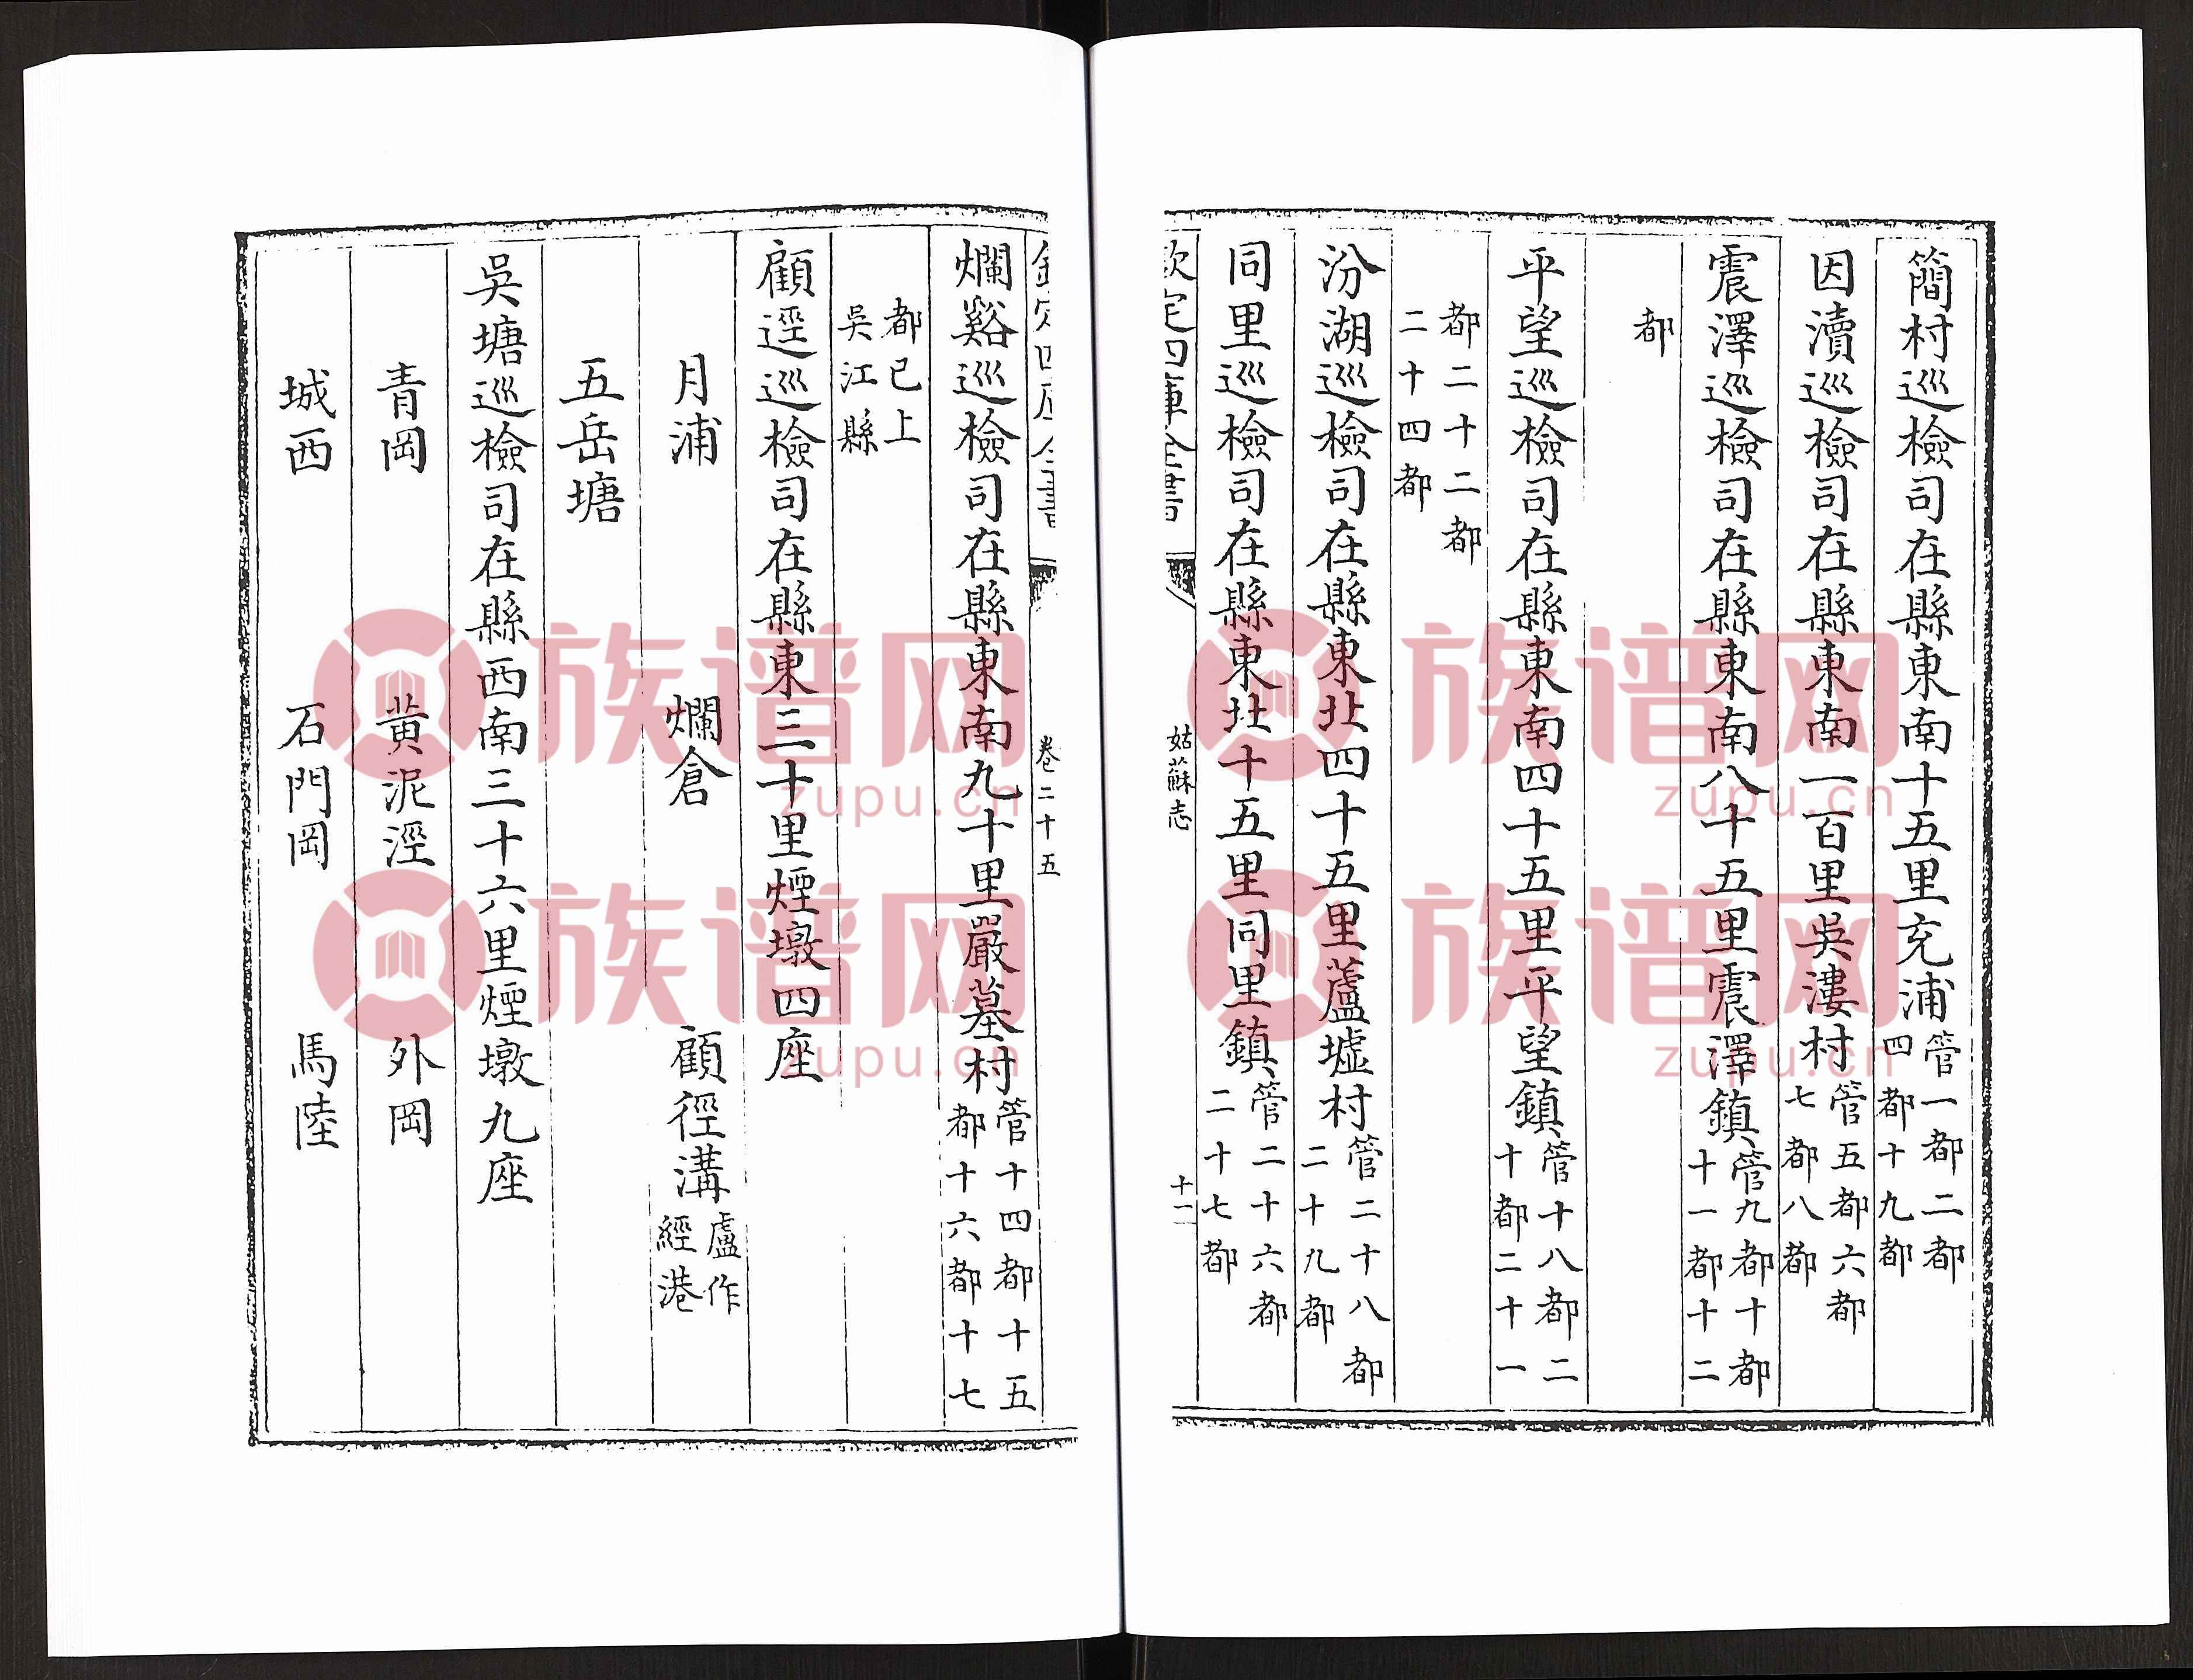 簡村巡檢司在縣東南十五里充浦管一都二都四都十九都
因瀆巡檢司在縣東南一百里吳漊村管五都六都七都八都
震澤巡檢司在縣東南八十五里震澤鎮管九都十都十一都十二
都
平望巡檢司在縣東南四十五里平望鎮管十八都二十都二十一
都二十二都二十四都
汾湖巡檢司在縣東北四十五里蘆墟村管二十八都二十九都
同里巡檢司在縣東北十五里同里鎮管二十六都二十七都
欽定四庫全書
姑蘇志
十一
欽定四庫全書
卷二十五
爛谿巡檢司在縣東南九十里嚴墓村管十四都十五都十六都十七
都已上吳江縣
顧逕巡檢司在縣東三十里煙墩四座
月浦 爛倉 顧徑溝盧作經港
五岳塘
吳塘巡檢司在縣西南三十六里煙墩九座
青岡 黄泥涇 外岡
城西 石門岡 馬陸
族谱网
zupu.cn
族谱网
zupu.cn
族谱网
zupu.cn
族谱网
zupu.cn